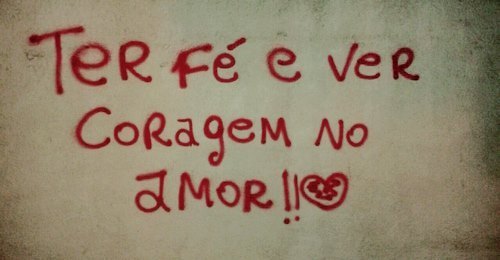 Ter fé e ver
coragem no
amor!!